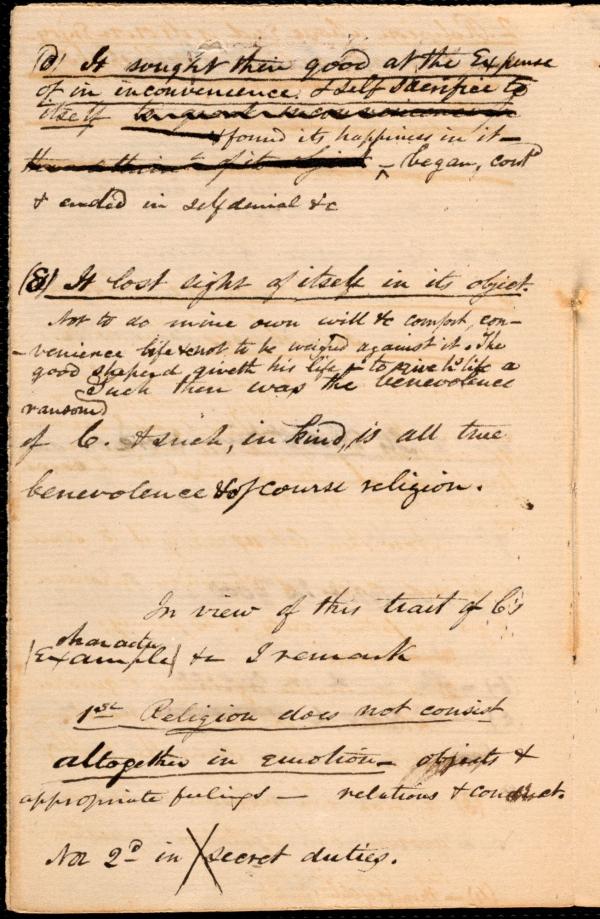 (d) It sought their good at the Expense
of in inconvenience & self sacrifice to
itself
& found its happiness in it –
– began, cont^d
& ended in self denial &c
(8) It lost sight of itself in its object.
Not to do mine own will &c comfort, con-
-venience life &c not to be weighed against it. The
good sheperd giveth his life & to give his life a
ransom
Such then was the benevolence
of C. & such, in kind, is all true
benevolence & of course religion.
In view of this trait of C's
character
(Example) &c I remark
1st Religion does not consist
altogether in emotion – objects &
appropriate feelings – relations & conduct.
Nor 2d in secret duties.